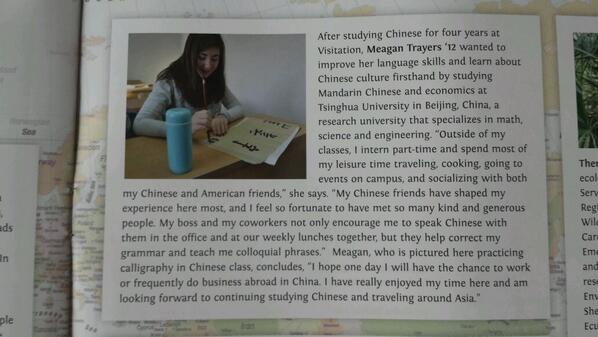 After studying Chinese for four years at
Visitation, Meagan Trayers '12 wanted to
improve her language skills and learn about
Chinese culture firsthand by studying
Mandarin Chinese and economics at
Tsinghua University in Beijing, China, a
research university that specializes in math,
science and engineering. "Outside of my
classes, I intern part-time and spend most of
my leisure time traveling, cooking, going to
events on campus, and socializing with both
my Chinese and American friends," she says. "My Chinese friends have shaped my
experience here most, and I feel so fortunate to have met so many kind and generous
people. My boss and my coworkers not only encourage me to speak Chinese with
them in the office and at our weekly lunches together, but they help correct my
grammar and teach me colloquial phrases." Meagan, who is pictured here practicing
calligraphy in Chinese class, concludes, "I hope one day I will have the chance to work
or frequently do business abroad in China. I have really enjoyed my time here and am
looking forward to continuing studying Chinese and traveling around Asia."
Sea